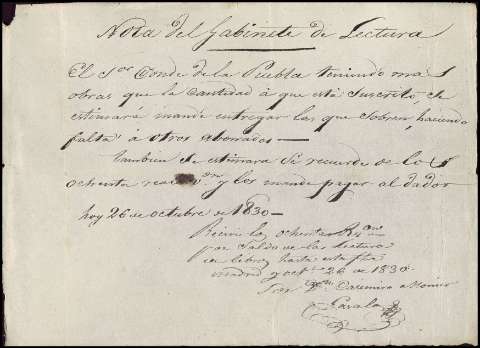 Nota del Gabinete de Lectura
El Sor Conde de la Puebla teniendo mas
obras que la Cantidad à que està suscrito, se
estimarà mande entregar las que sobren, haciendo
falta à otros abonados—
tambien se estimara se recuerde de los
ochenta reales von y los mande pagar al dador
hoy 26 de octubre de 1830—
Recivi los ochenta Rs von
por Saldo de la lectura
de libros hasta esta fha
madrid y oct.e 26 de 1830.
Casimiro Monier